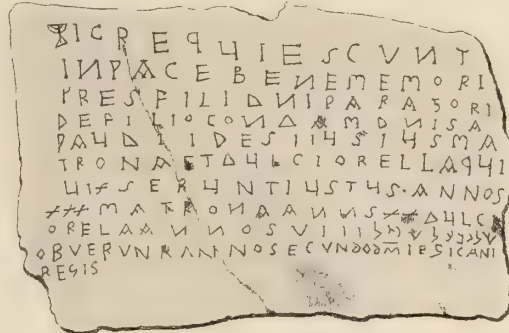 IC REQUIESCVNT
IN PACE BENEMEMORI
TRES FILI DNI PARAGORI
DE FILIO CONDAM DNI SA
PAUDI IDEST IUSTUS MA
TRONA ET DULCIORELLA QUI
UIXSERUNT IUSTUS·ANNOS
XXX MATRONA ANNIS XX DULCI
ORELA ANNOS VIIII שלום על שראל
OBVERVN ANNO SECVNDO DMI EGICANI
REGIS